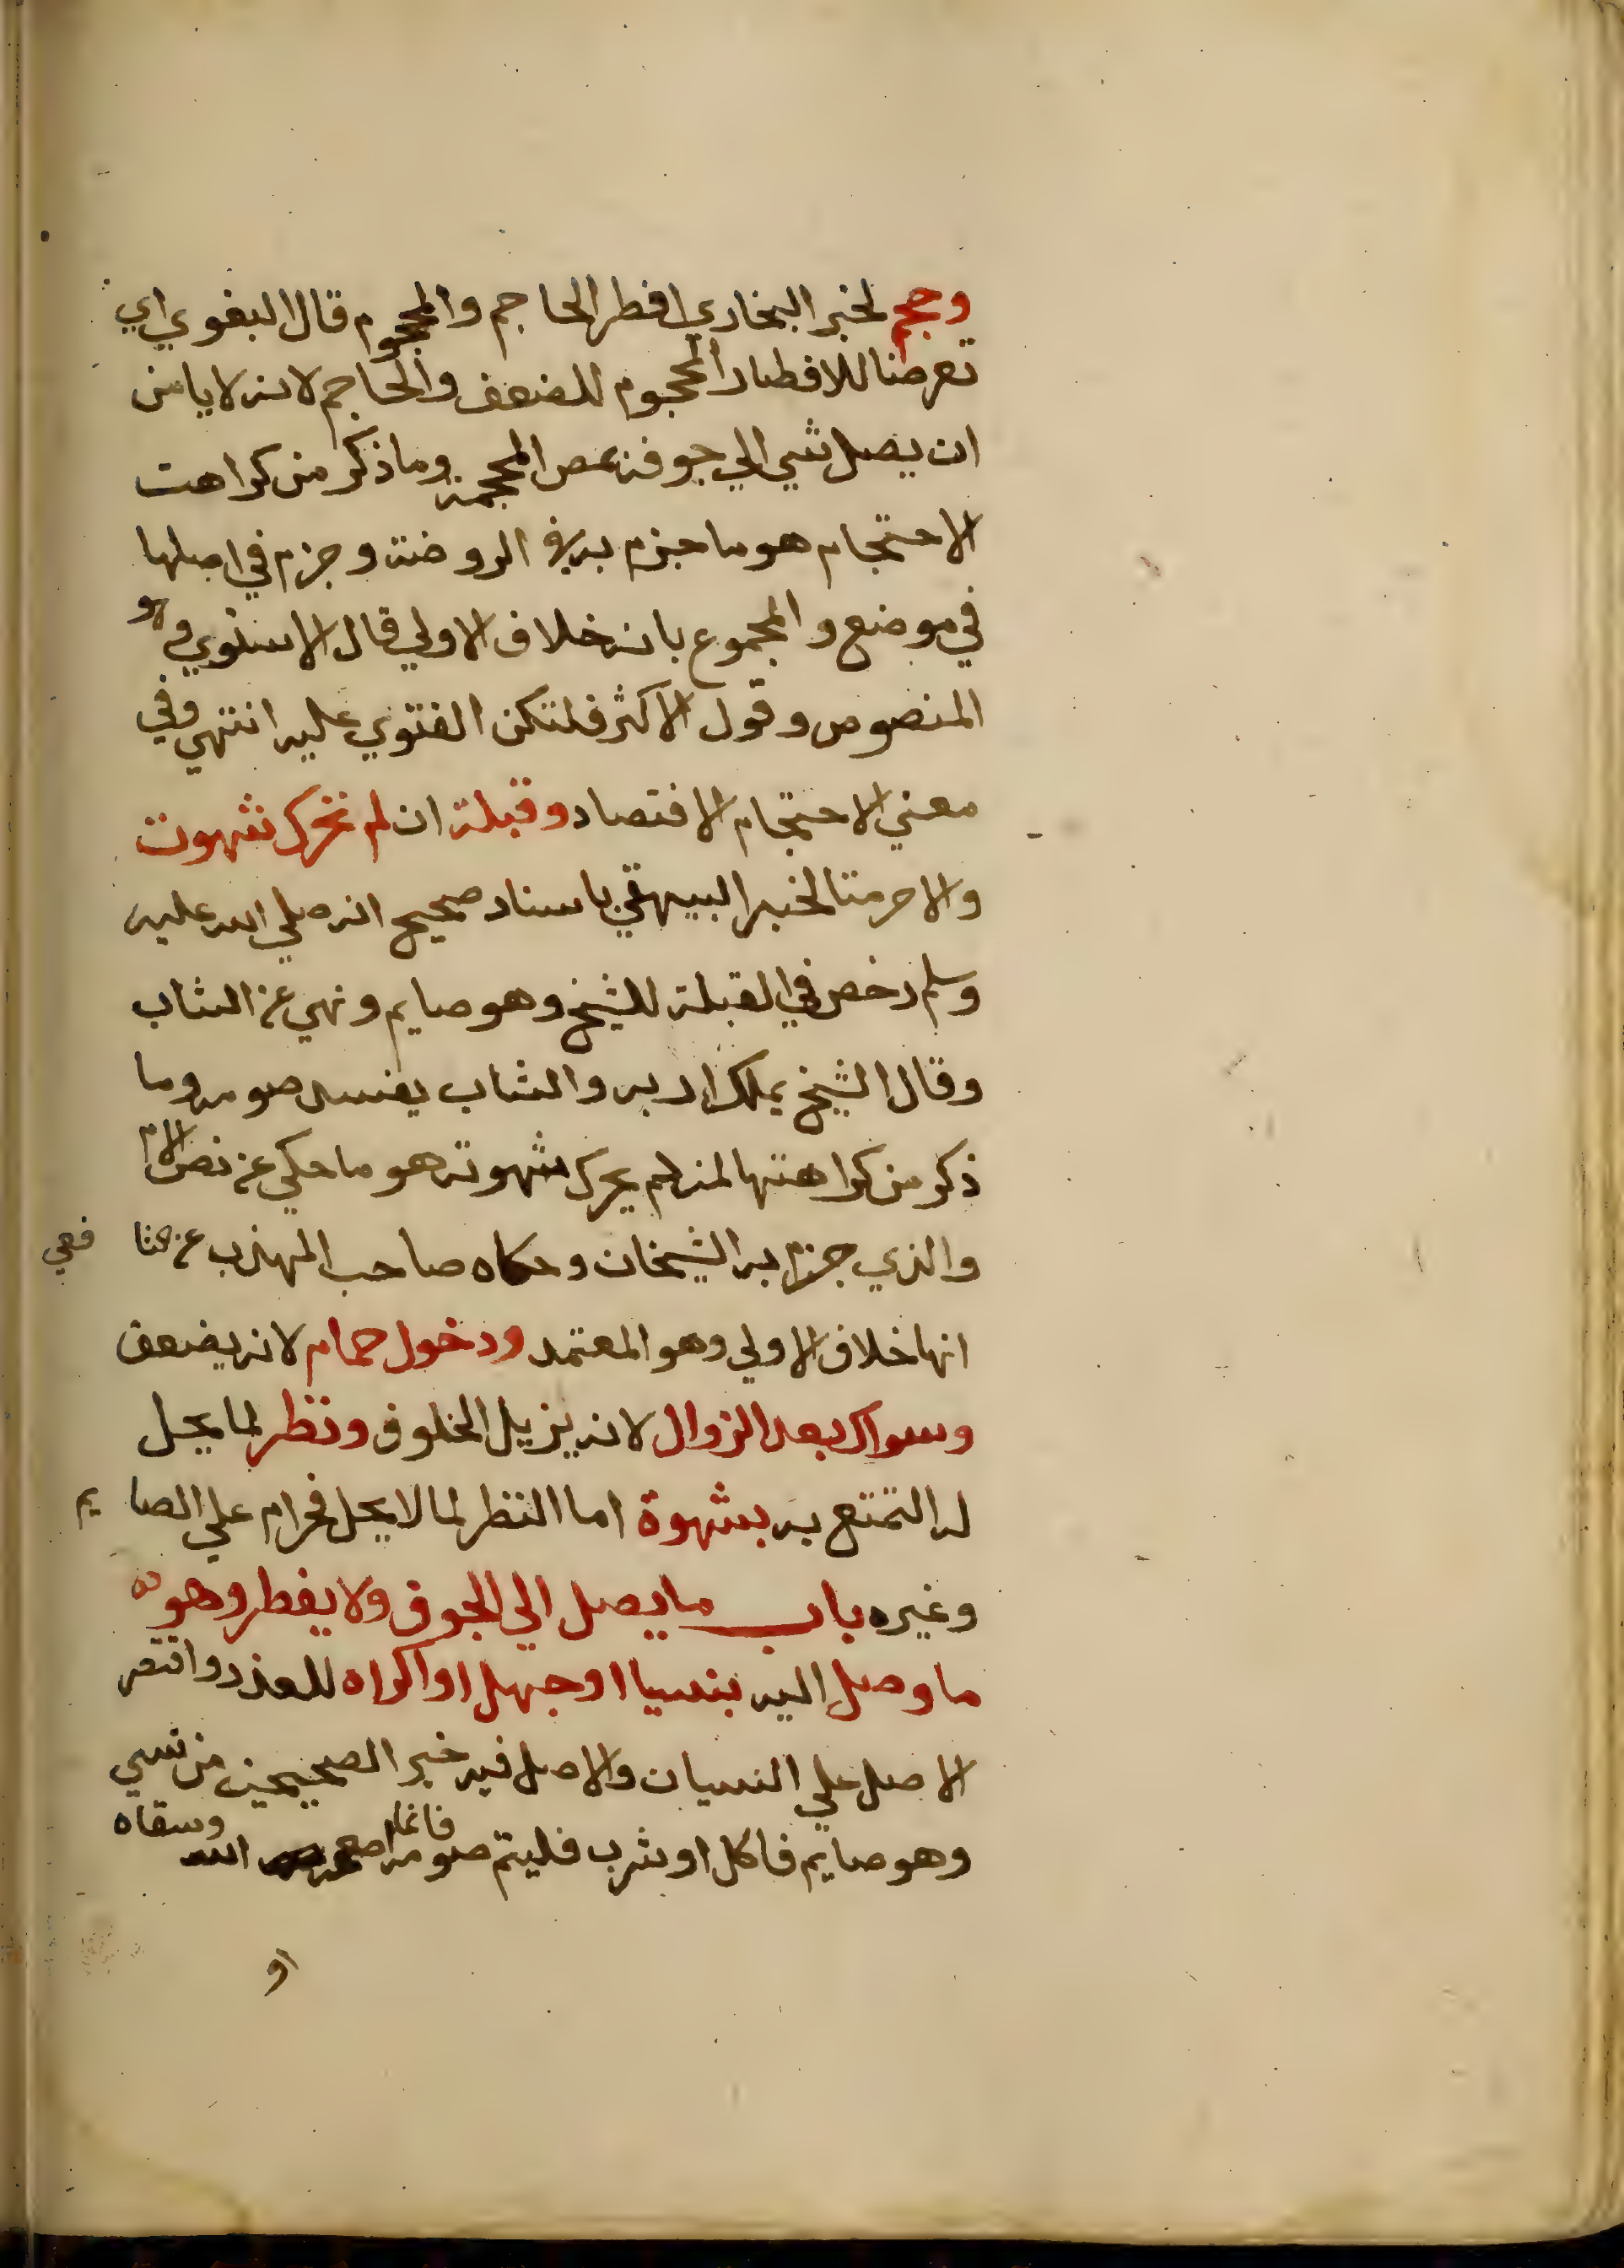 وحجم لخبر البخاري افطر الحاجم والمحجوم قال البغوي اي
تعرضا للافطار المحجوم للضعف والحاجم لانه لا يامن
ان يصل شي الي جوفه بمص المحجمة وما ذكر من كراهت
الاحتجام هو ما جزم به في الروضة وجزم في اصلها
في موضع والمجموع بانه خلاف الاولي قال الاسنوي وهو
المنصوص وقول الاكثر فلتكن الفتوي عليه انتهي وفي
معني الاحتجام الافتصاد وقبلة ان لم تحرك شهوته
والا حرمتا لخبر البيهقي باسناد صحيح انه صلي الله عليه
وسلم رخص في القبلة للشيخ وهو صايم ونهي عن الشاب
وقال الشيخ يملك اربه والشاب يفسد صومه وما
ذكر من كراهتها لمن لم يحرك شهوته هو ما حكي عن نص الام
والذي جزم به الشيخان وحكاه صاحب المهذب عن الشا فعي
انها خلاف الاولي وهو المعتمد ودخول حمام لانه يضعف
وسواك بعد الزوال لانه يزيل الخلوف ونظر لما يحل
له التمتع به بشهوة اما النظر لما لا يحل فحرام علي الصا يم
وغيره باب ما يصل الي الجوف ولا يفطر وهو
ما وصل اليه بنسيا او جهل او اكراه للعذر واقتصر
الاصل علي النسيان والاصل فيه خبر الصحيحين من نسي
وهو صايم فاكل او شرب فليتم صومه فانما اطعمه الله وسقاه
او